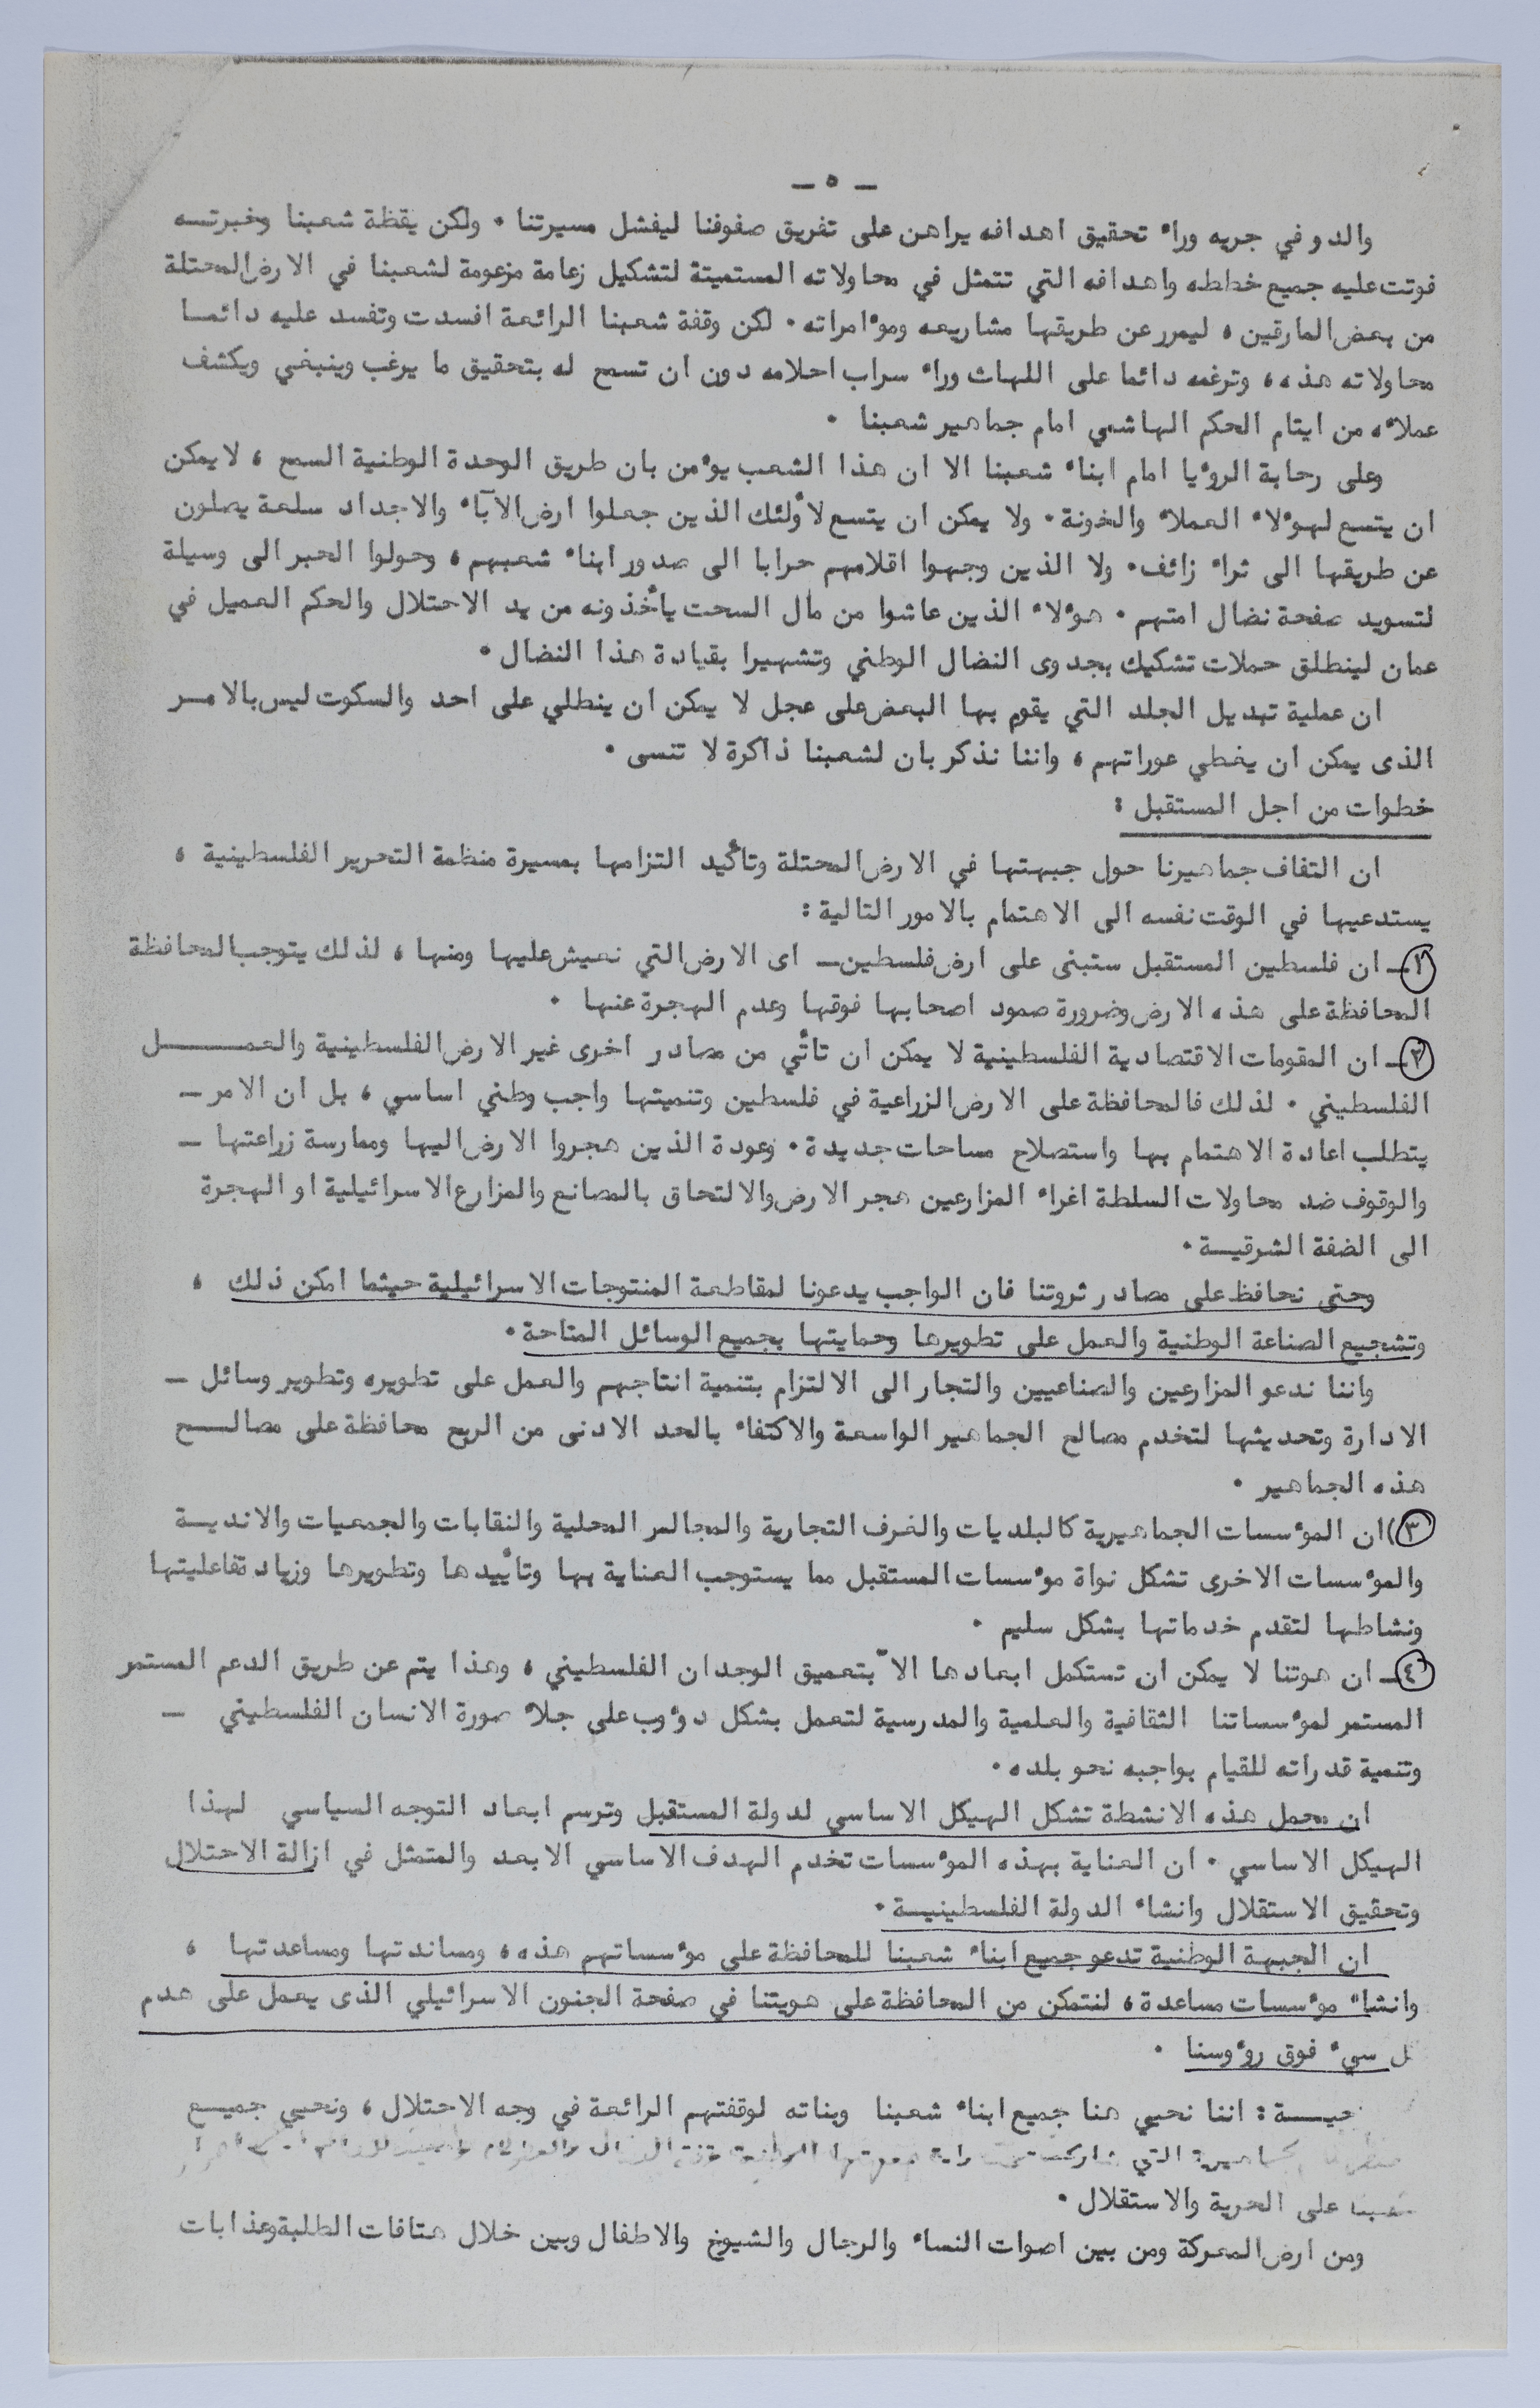 ـ ٥ ـ
والدو في جريه وراء تحقيق اهدافه يراهن على تفريق صفوفنا ليفشل مسيرتنا ٠ ولكن يقظة شعبنا وخبرتــه
فوتت عليه جميع خططه واهدافه التي تتمثل في محاولاته المستميتة لتشكيل زعامة مزعومة لشعبنا في الارض المحتلة
من بعض المارقين ، ليمرر عن طريقها مشاريعه ومؤامراته ٠ لكن وقفة شعبنا الرائعة افسدت وتفسد عليه دائمــا
محاولاته هذه ، وترغمه دائما على اللهاث وراء سراب احلامه دون ان تسمح له بتحقيق ما يرغب وينبغي ويكشف
عملاءه من ايتام الحكم الهاشمي امام جماهير شعبنا ٠
وعلى رحابة الرؤيا امام ابناء شعبنا الا ان هذا الشعب يؤمن بان طريق الوحدة الوطنية السمح ، لا يمكن
ان يتسع لهؤلاء العملاء والخونة ٠ ولا يمكن ان يتسع لأولئك الذين جعلوا ارض الآباء والاجداد سلعة يصلون
عن طريقها الى ثراء زائف ٠ ولا الذين وجهوا اقلامهم حرابا الى صدور ابناء شعبهم ، وحولوا الحبر الى وسيلة
لتسويد صفحة نضال امتهم ٠ هؤلاء الذين عاشوا من مال السحت يأخذونه من يد الاحتلال والحكم العميل في
عمان لينطلق حملات تشكيك بجدوى النضال الوطني وتشهيرا بقيادة هذا النضال ٠
ان عملية تبديل الجلد التي يقوم بها البعض على عجل لا يمكن ان ينطلي على احد والسكوت ليس بالامــر
الذى يمكن ان يغطي عوراتهم ، واننا نذكر بان لشعبنا ذاكرة لا تنسى ٠
خطوات من اجل المستقبل :
ان التفاف جماهيرنا حول جبهتها في الارض المحتلة وتأكيد التزامها بمسيرة منظمة التحرير الفلسطينية ،
يستدعيها في الوقت نفسه الى الاهتمام بالامور التالية :
١ـ ان فلسطين المستقبل ستبنى على ارض فلسطين ـ اى الارض التي نعيش عليها ومنها ، لذلك يتوجب المحافظة
المحافظة على هذه الارض وضرورة صمود اصحابها فوقها وعدم الهجرة عنها ٠
٢ـ ان المقومات الاقتصادية الفلسطينية لا يمكن ان تأتي من مصادر اخرى غير الارض الفلسطينية والعمـــــل
الفلسطيني ٠ لذلك فالمحافظة على الارض الزراعية في فلسطين وتنميتها واجب وطني اساسي ، بل ان الامر ـ
يتطلب اعادة الاهتمام بها واستصلاح مساحات جديدة ٠ وعودة الذين هجروا الارض اليها وممارسة زراعتها ـ
والوقوف ضد محاولات السلطة اغراء المزارعين هجر الارض والالتحاق بالمصانع والمزارع الاسرائيلية او الهجرة
الى الضفة الشرقيــة ٠
وحتى نحافظ على مصادر ثروتنا فان الواجب يدعونا لمقاطعة المنتوجات الاسرائيلية حيثما امكن ذلك ،
وتشجيع الصناعة الوطنية والعمل على تطويرها وحمايتها بجميع الوسائل المتاحة ٠
واننا ندعو المزارعين والصناعيين والتجار الى الالتزام بتنمية انتاجهم والعمل على تطويره وتطوير وسائل ـ
الادارة وتحديثها لتخدم مصالح الجماهير الواسعة والاكتفاء بالحد الادنى من الربح محافظة على مصالـــح
هذه الجماهير ٠
٣) ان المؤسسات الجماهيرية كالبلديات والغرف التجارية والمجالس المحلية والنقابات والجمعيات والانديــة
والمؤسسات الاخرى تشكل نواة مؤسسات المستقبل مما يستوجب العناية بها وتأييدها وتطويرها وزياد تفاعليتها
ونشاطها لتقدم خدماتها بشكل سليم ٠
٤ـ ان هوتنا لا يمكن ان تستكمل ابعادها الاّ بتعميق الوجدان الفلسطيني ، وهذا يتم عن طريق الدعم المستمر
المستمر لمؤسساتنا الثقافية والعلمية والمدرسية لتعمل بشكل دؤوب على جلاء صورة الانسان الفلسطيني ـ
وتنمية قدراته للقيام بواجبه نحو بلده ٠
ان محمل هذه الانشطة تشكل الهيكل الاساسي لدولة المستقبل وترسم ابعاد التوجه السياسي لهذا
الهيكل الاساسي ٠ ان العناية بهذه المؤسسات تخدم الهدف الاساسي الابعد والمتمثل في ازالة الاحتلال
وتحقيق الاستقلال وانشاء الدولة الفلسطينيــة ٠
ان الجبهة الوطنية تدعو جميع ابناء شعبنا للمحافظة على مؤسساتهم هذه ، ومساندتها ومساعدتها ،
وانشاء مؤسسات مساعدة ، لنتمكن من المحافظة على هويتنا في صفحة الجنون الاسرائيلي الذى يعمل على هدم
ل سيء فوق رؤوسنا ٠
حيــة : اننا نحيي هنا جميع ابناء شعبنا وبناته لوقفتهم الرائعة في وجه الاحتلال ، ونحيي جميــع
التي
على الحرية والاستقلال ٠
ومن ارض المعركة ومن بين اصوات النساء والرجال والشيوخ والاطفال وبين خلال هتافات الطلبة وعذابات